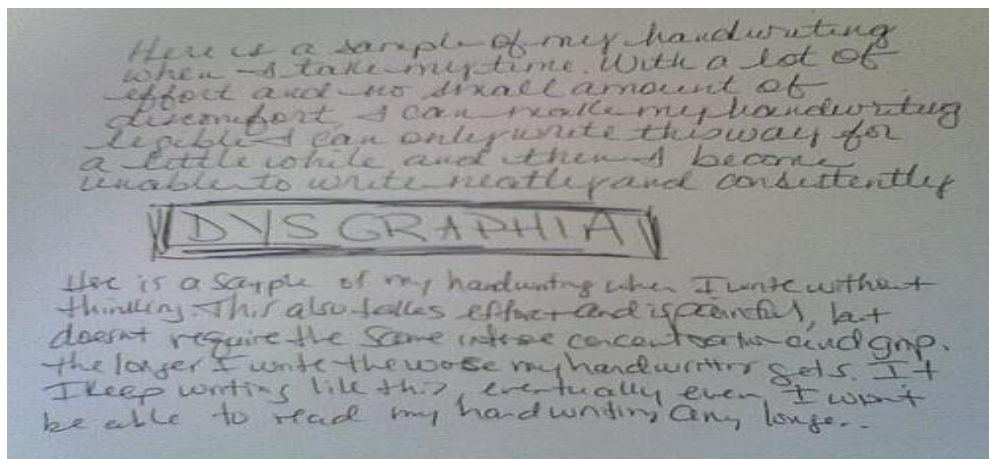 Here is a sample of my handwriting
when I take my time. With a lot of
effort and no small amount of
discomfort I can make my handwriting
legible I can only write this way for
a little while and then I become
unable to write neatly and consistently
DYSGRAPHIA
Here is a sample of my handwriting when I write without
thinking. This also takes effort and is painful, but
doesnt require the same intense concentration and grip.
the longer I write the worse my handwriting gets. If
I keep writing like this, eventually even I won't
be able to read my handwriting any longer..